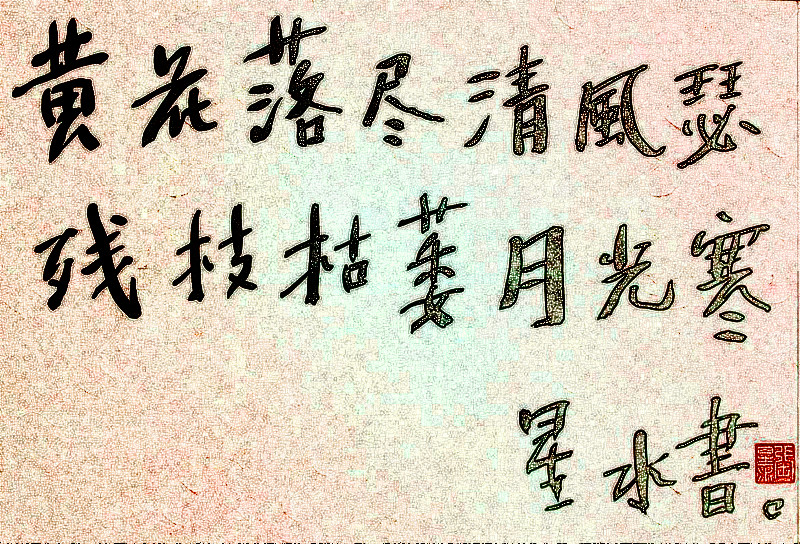 黄花落尽清風瑟
残枝枯萎月光寒
星水書。